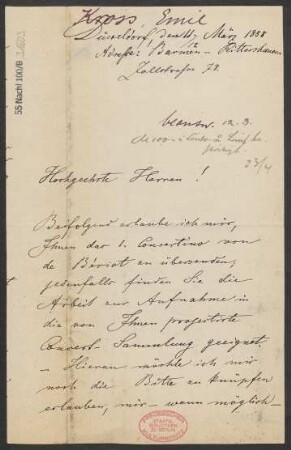 Kross, Emil
Düsseldorf, den 11. März 1888
Adresse: Barmen - Rittershausen
Zollstrasse 78.
beantw. 12.3.
23/4
55 Nachl 100/B
Hochgeehrte Herren!
Beifolgend erlaube ich mir,
Ihnen das 1. Concertino von
de Bériot zu übersenden,
jedenfalls finden Sie die
Arbeit zur Aufnahme in
die von Ihnen projectirte
Concert-Sammlung geeignet.
- Hieran möchte ich mir
noch die Bitte zu knüpfen
erlauben, mir - wenn möglich -